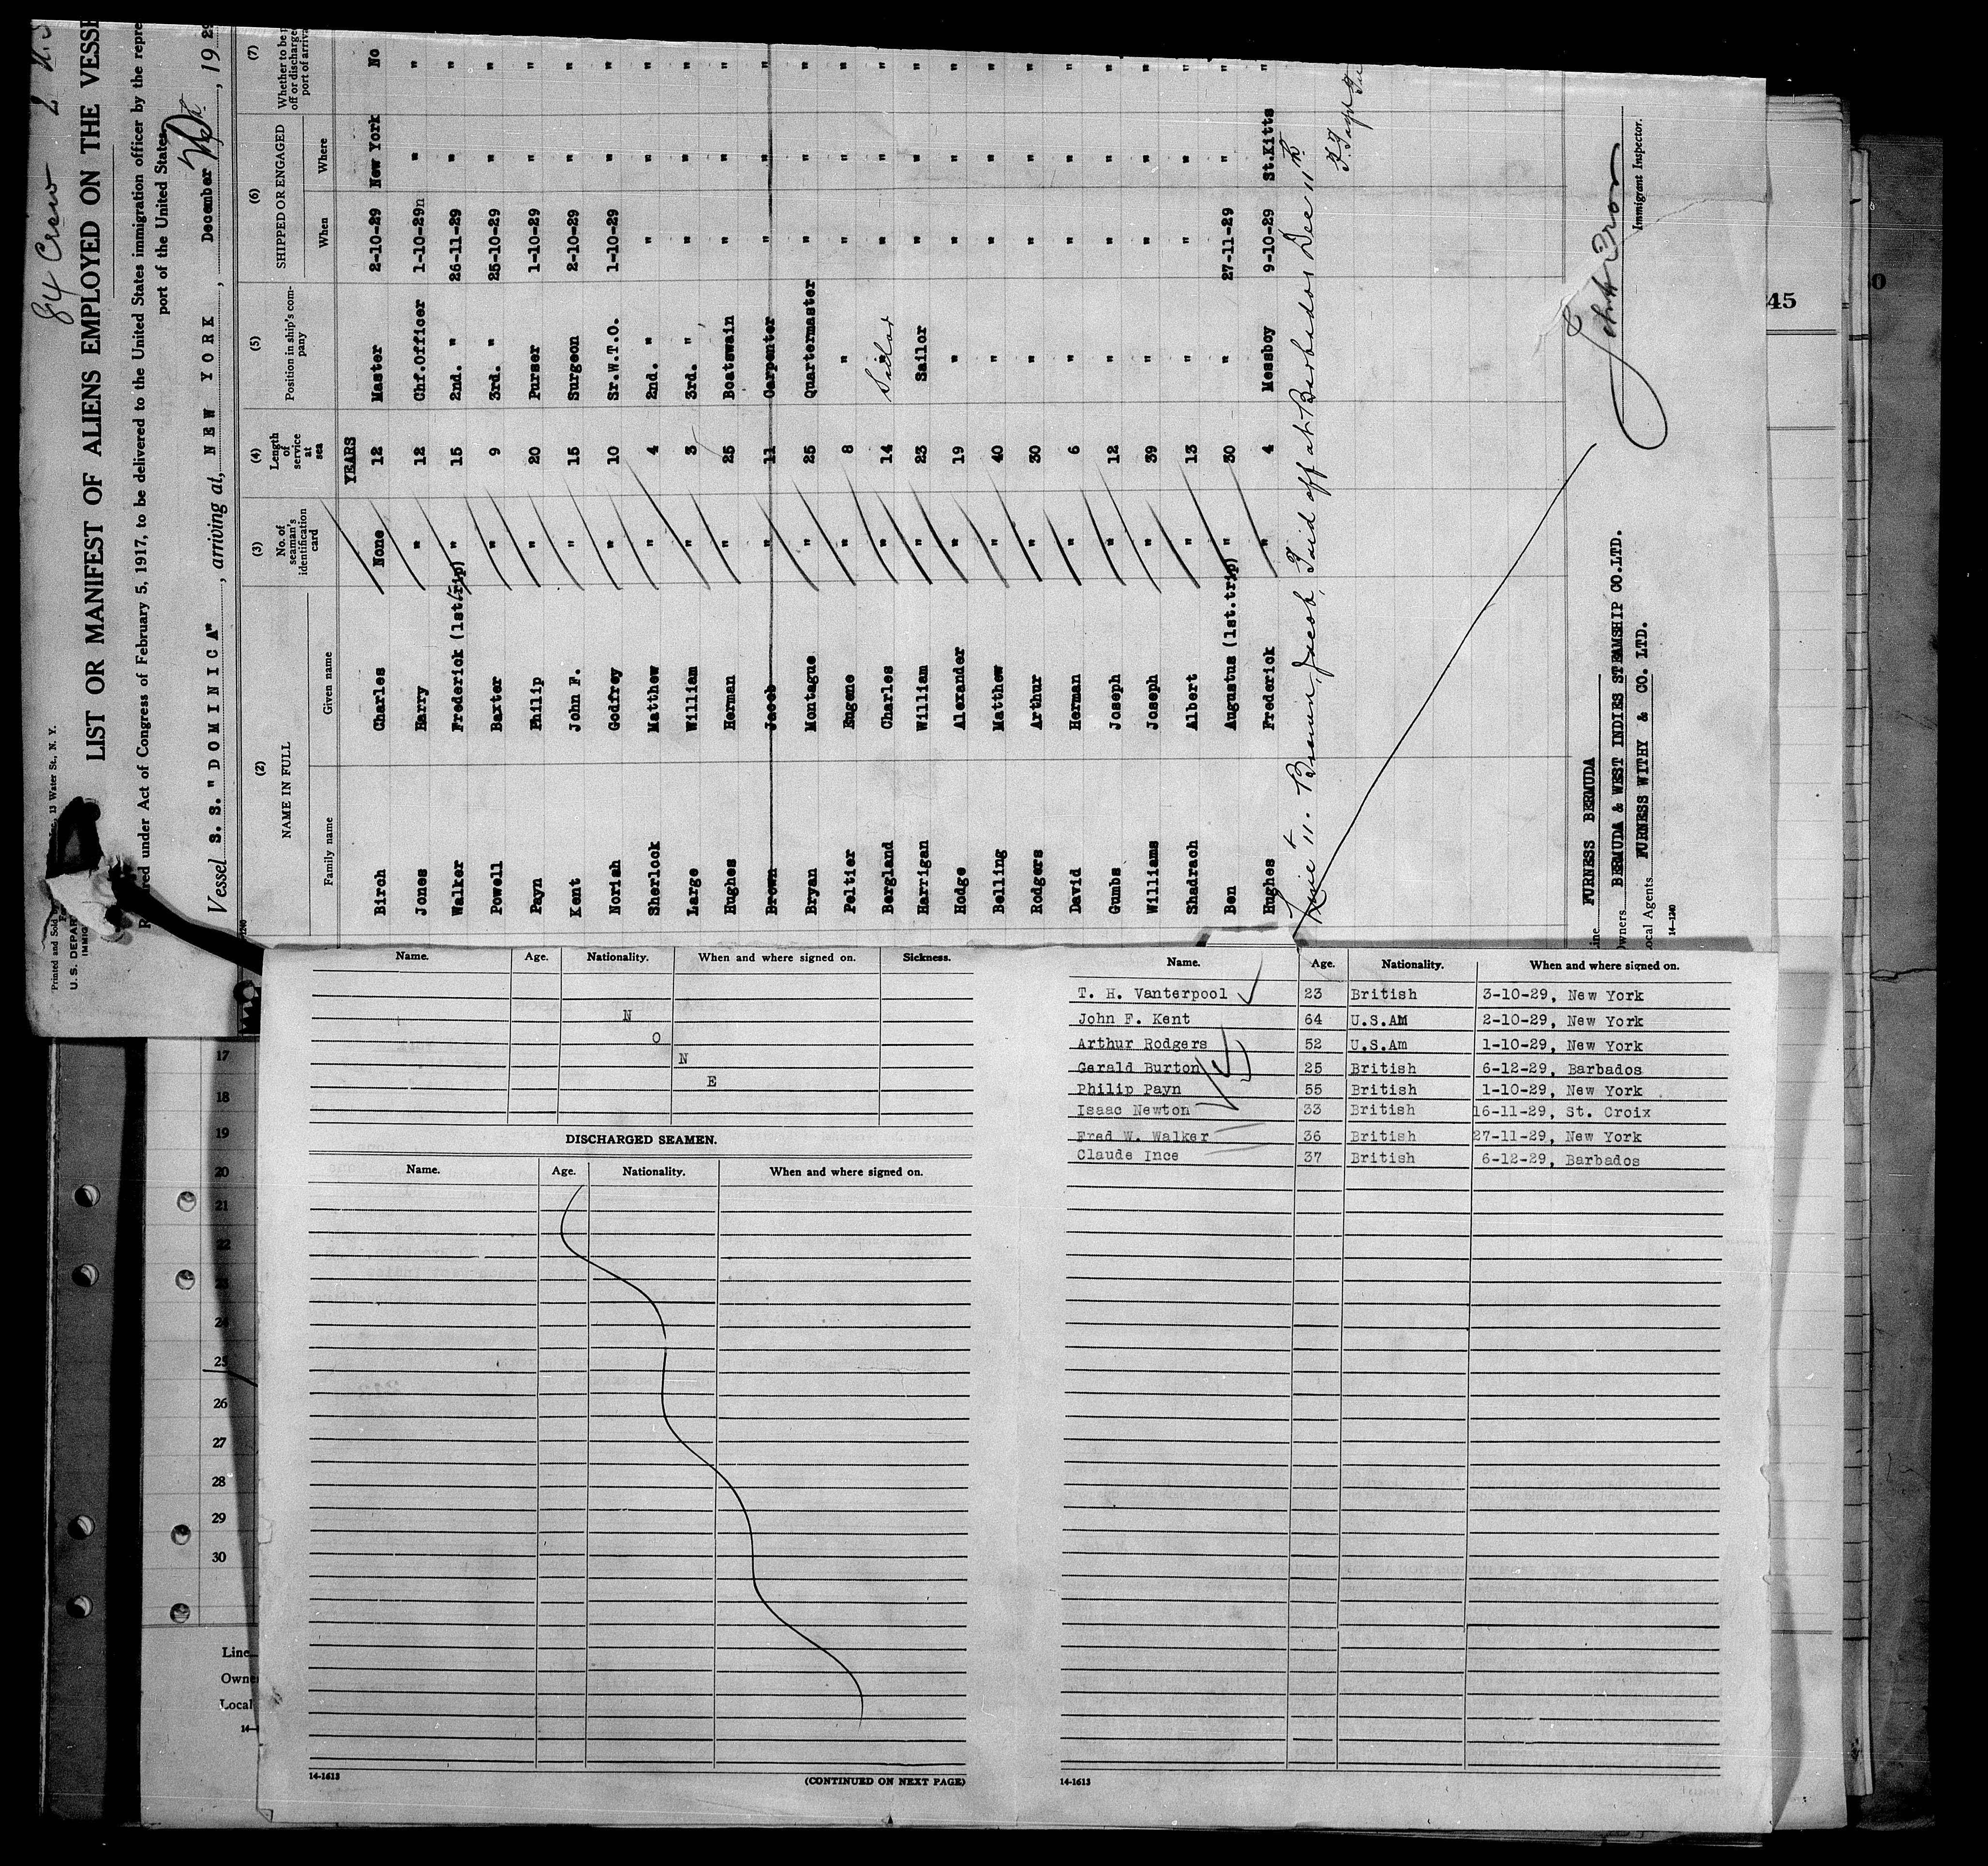 84 Crew 2 U.S
Printed and Sold 13 Water St., N. Y.
U. S. DEPAR
IMMIG
LIST OR MANIFEST OF ALIENS EMPLOYED ON THE VESSE
red under Act of Congress of February 5, 1917, to be delivered to the United States immigration officer by the repre
port of the United States
Vessel S. S. "DOMINICA", arriving at, NEW YORK, December , 19 29
(2) (3) (4) (5) (6) (7)
NAME IN FULL No. of seaman's identification card Length of service at sea Position in ship's company SHIPPED OR ENGAGED Whether to be off or discharged port of arriva
Family name Given name When Where
YEARS
Birch Charles None 12 Master 2-10-29 New York No
Jones Harry " 12 Chf.Officer 1-10-29n " "
Walker Frederick (1st trip) " 15 2nd. " 26-11-29 " "
Powell Baxter " 9 3rd. " 25-10-29 " "
Payn Philip " 20 Purser 1-10-29 " "
Kent John F. " 15 Surgeon 2-10-29 " "
Noriah Godfrey " 10 Sr.W.T.O. 1-10-29 " "
Sherlock Matthew " 4 2nd. " " " "
Large William " 3 3rd. " " " "
Hughes Herman " 25 Boatswain " " "
Brown Jacob " 11 Carpenter " " "
Bryan Montague " 25 Quartermaster " " "
Peltier Eugene " 8 " " " "
Bergland Charles " 14 Sailor " " "
Harrigan William " 23 Sailor " " "
Hodge Alexander " 19 " " " "
Belling Matthew " 40 " " " "
Rodgers Arthur " 30 " " " "
David Herman " 6 " " " "
Gumbs Joseph " 12 " " " "
Williams Joseph " 39 " " " "
Shadrach Albert " 13 " " " "
Ben Augustus (1st.trip) " 30 " 27-11-29 " "
Hughes Frederick " 4 Messboy 9-10-29 St.Kitts "
Line 11. Brown, Jacob, Paid off at Barbados Dec 11th
ine FURNESS BERMUDA
wners BERMUDA & WEST INDIES STEAMSHIP CO.LTD.
ocal Agents FURNESS WITHY & CO. LTD.
14-1240
Immigrant Inspector.
45
Name. Age. Nationality. When and where signed on. Sickness.
N
O
N
E
DISCHARGED SEAMEN.
Name. Age. Nationality. When and where signed on.
14-1613 (CONTINUED ON NEXT PAGE)
Name. Age. Nationality. When and where signed on.
T. H. Vanterpool 23 British 3-10-29, New York
John F. Kent 64 U.S.AM 2-10-29, New York
Arthur Rodgers 52 U.S.Am 1-10-29, New York
Gerald Burton 25 British 6-12-29, Barbados
Philip Payn 55 British 1-10-29, New York
Isaac Newton 33 British 16-11-29, St. Croix
Fred W. Walker 36 British 27-11-29, New York
Claude Ince 37 British 6-12-29, Barbados
14-1613
17
18
19
20
21
22
23
24
25
26
27
28
29
30
Line
Owne
Local